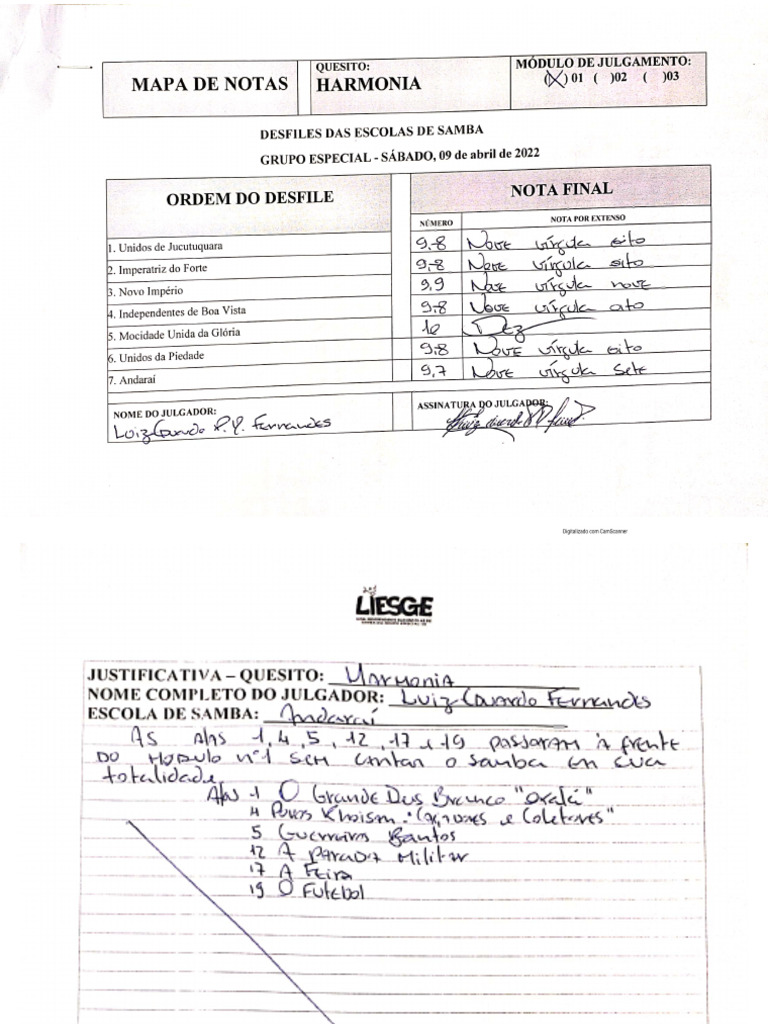 MAPA DE NOTAS
QUESITO:
HARMONIA
MÓDULO DE JULGAMENTO:
(X) 01 ( )02 ( )03
DESFILES DAS ESCOLAS DE SAMBA
GRUPO ESPECIAL - SÁBADO, 09 de abril de 2022
ORDEM DO DESFILE
NOTA FINAL
NÚMERO NOTA POR EXTENSO
1. Unidos de Jucutuquara 9,8 Nove vírgula oito
2. Imperatriz do Forte 9,8 Nove vírgula oito
3. Novo Império 9,9 Nove vírgula nove
4. Independentes de Boa Vista 9,8 Nove vírgula oito
5. Mocidade Unida da Glória 10 Dez
6. Unidos da Piedade 9,8 Nove vírgula oito
7. Andaraí 9,7 Nove vírgula sete
NOME DO JULGADOR:
Luiz Eduardo P. Fernandes
ASSINATURA DO JULGADOR:
Digitalizado com CamScanner
LIESGE
JUSTIFICATIVA – QUESITO: Harmonia
NOME COMPLETO DO JULGADOR: Luiz Eduardo Fernandes
ESCOLA DE SAMBA: Andaraí
As Alas 1, 4, 5, 12, 17 e 19 passaram à frente
do modulo nº1 sem cantar o samba em sua
totalidade
Alas 1 O Grande Deus Branco "Oxalá"
4 Povos Khoisan: Caçadores e Coletores"
5 Guerreiros Bantos
12 A parada Militar
17 A Feira
19 O Futebol